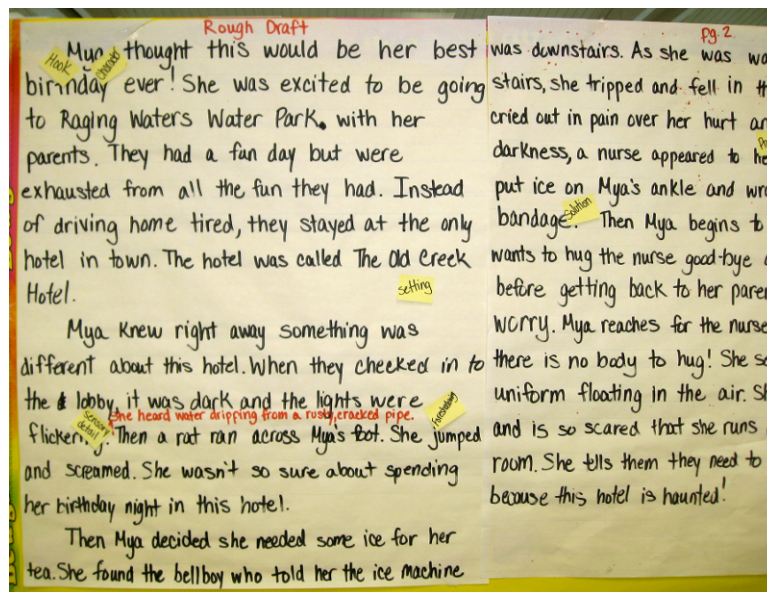 Rough Draft
Mya thought this would be her best
Hook
character
birthday ever! She was excited to be going
to Raging Waters Water Park. with her
parents. They had a fun day but were
exhausted from all the fun they had. Instead
of driving home tired, they stayed at the only
hotel in town. The hotel was called The Old Creek
Hotel.
setting
Mya Knew right away something was
different about this hotel. When they checked in to
the lobby, it was dark and the lights were
She heard water dripping from a rusty, cracked pipe.
Sensory
detail
foreshadowing
flickering. Then a rat ran across Mya's foot. She jumped
and screamed. She wasn't so sure about spending
her birthday night in this hotel.
Then Mya decided she needed some ice for her
tea. She found the bellboy who told her the ice machine
pg. 2
was downstairs. As she was wa
stairs, she tripped and fell in th
cried out in pain over her hurt an
darkness, a nurse appeared to he
put ice on Mya's ankle and wra
bandage. Then Mya begins to
Solution
wants to hug the nurse good-bye
before getting back to her paren
worry. Mya reaches for the nurse
there is no body to hug! She se
uniform floating in the air. Sh
and is so scared that she runs
room. She tells them they need to
because this hotel is haunted!